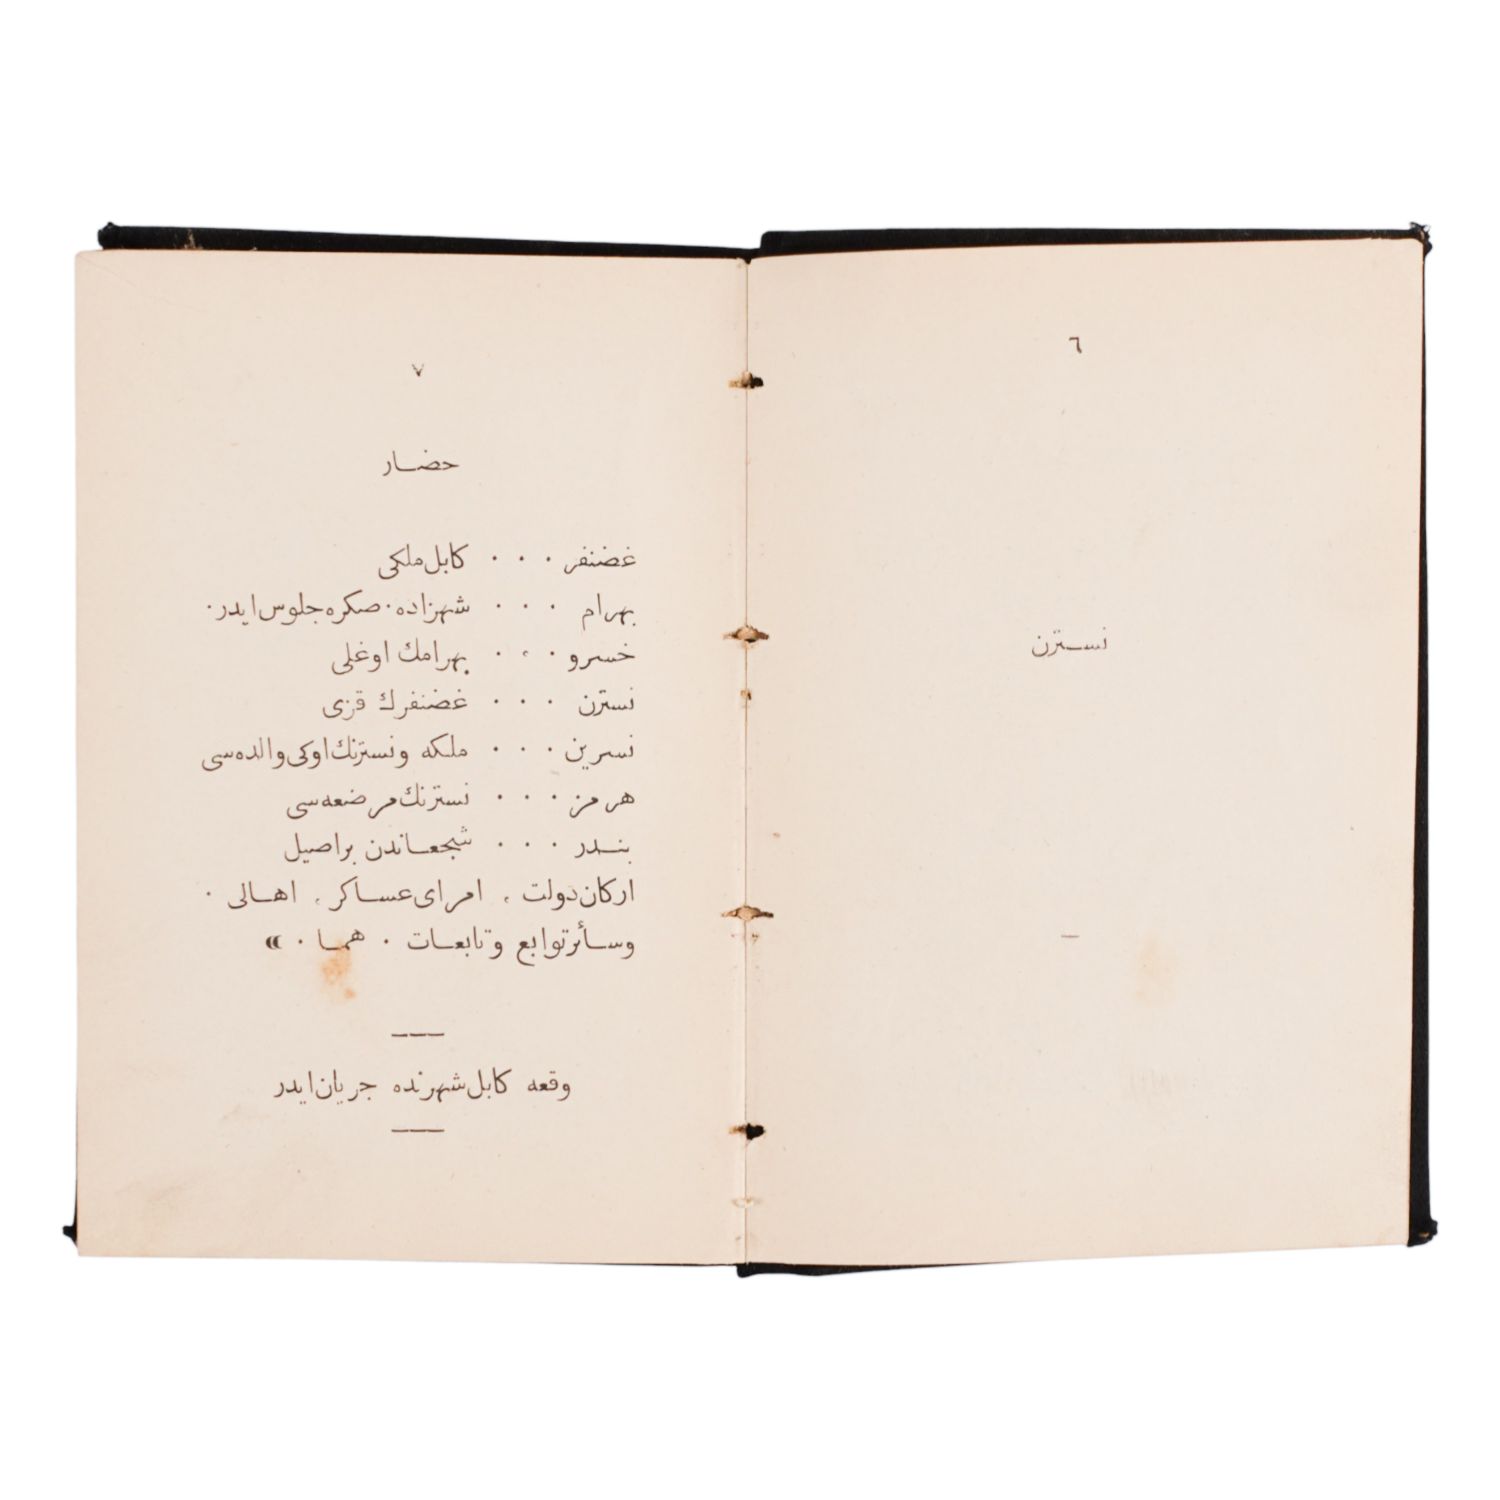 ٦
نسترن
٧
حضار
غضنفر . . . كابل ملكى
بهرام . . . شهزاده . صكره جلوس ايدر .
خسرو . . . بهرامك اوغلى
نسترن . . . غضنفرك قزى
نسرين . . . ملكه و نسترنك اوكى والده سى
هرمز . . . نسترنك مرضعه سى
بندر . . . شجعاندن بر اصيل
اركان دولت ، امراى عساكر ، اهالى .
وسائر توابع وتابعات . هما . »
وقعه كابل شهرنده جريان ايدر